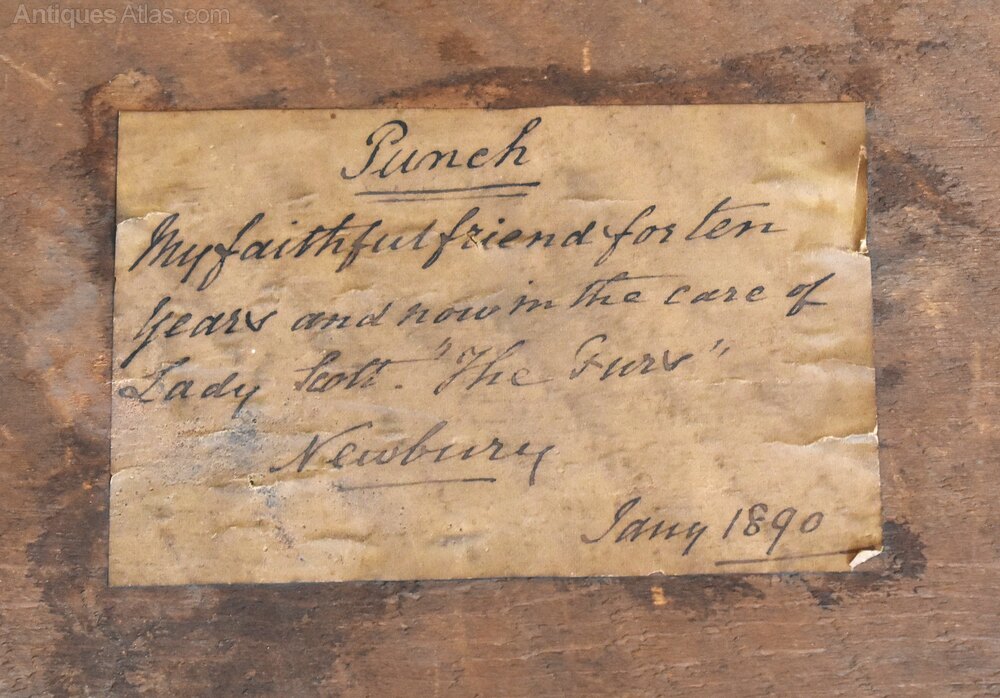 AntiquesAtlas.com
Punch
My faithful friend for ten
years and now in the care of
Lady Scott. "The Furs"
Newbury
Jany 1890